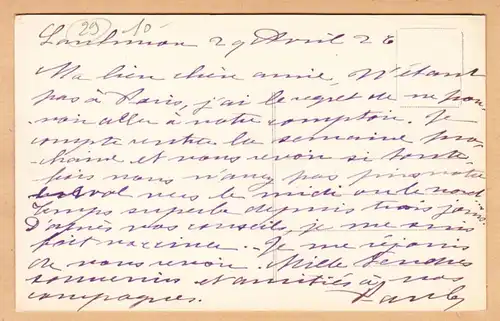 (29) 10
29 Avril 26
Ma bien chère amie, N'étant
pas à Paris, j'ai le regret de ne pou-
voir aller à notre comptoir. Je
compte rentrer la semaine pro-
chaine et vous revoir si toute-
fois vous n'avez pas pris votre
vol vers le midi ou le nord.
Temps superbe depuis trois jours.
D'après vos conseils, je me suis
fait vacciner. Je me réjouis
de vous revoir. Mille tendres
souvenirs et amitiés à vos
compagnes.